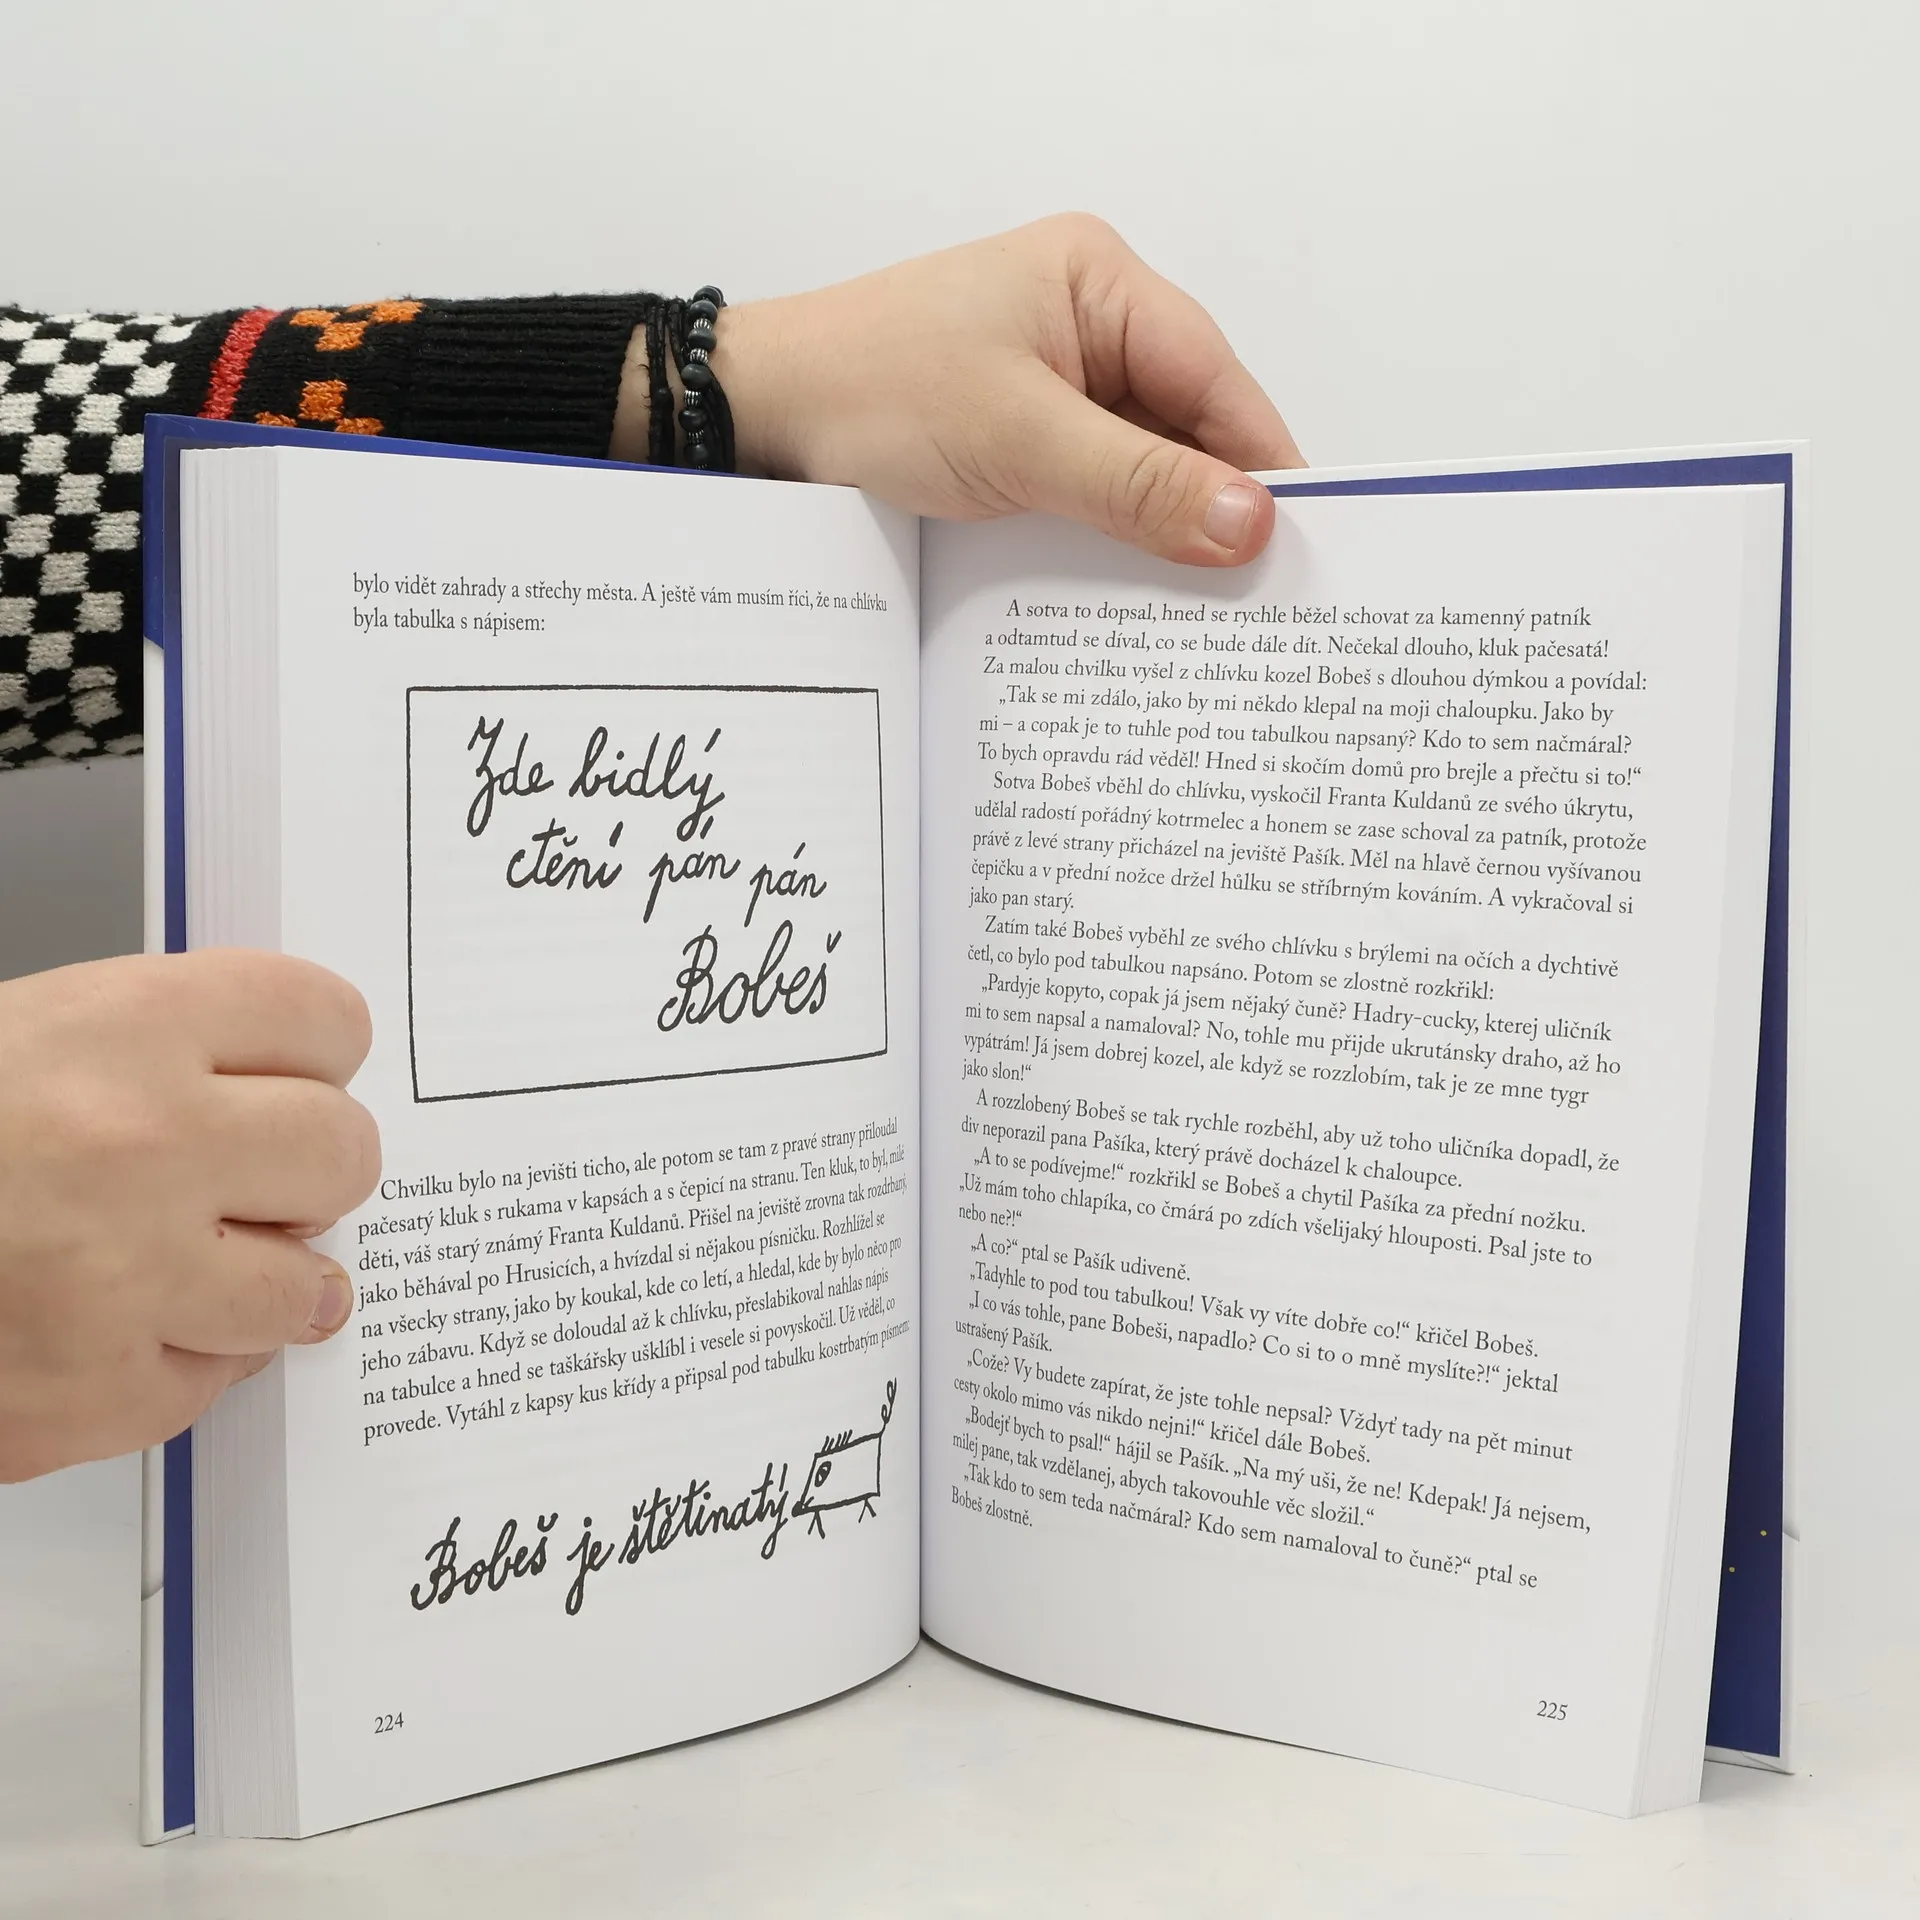 bylo vidět zahrady a střechy města. A ještě vám musím říci, že na chlívku
byla tabulka s nápisem:
Zde bidlý
ctění pán pán
Bobeš
Chvilku bylo na jevišti ticho, ale potom se tam z pravé strany přiloudal
pačesatý kluk s rukama v kapsách a s čepicí na stranu. Ten kluk, to byl, milé
děti, váš starý známý Franta Kuldanů. Přišel na jeviště zrovna tak rozdrbaný,
jako běhával po Hrusicích, a hvízdal si nějakou písničku. Rozhlížel se
na všecky strany, jako by koukal, kde co letí, a hledal, kde by bylo něco pro
jeho zábavu. Když se doloudal až k chlívku, přeslabikoval nahlas nápis
na tabulce a hned se taškářsky ušklíbl i vesele si povyskočil. Už věděl, co
provede. Vytáhl z kapsy kus křídy a připsal pod tabulku kostrbatým písmem:
Bobeš je štětinatý
224
A sotva to dopsal, hned se rychle běžel schovat za kamenný patník
a odtamtud se díval, co se bude dále dít. Nečekal dlouho, kluk pačesatá!
Za malou chvilku vyšel z chlívku kozel Bobeš s dlouhou dýmkou a povídal:
„Tak se mi zdálo, jako by mi někdo klepal na moji chaloupku. Jako by
mi – a copak je to tuhle pod tou tabulkou napsaný? Kdo to sem načmáral?
To bych opravdu rád věděl! Hned si skočím domů pro brejle a přečtu si to!“
Sotva Bobeš vběhl do chlívku, vyskočil Franta Kuldanů ze svého úkrytu,
udělal radostí pořádný kotrmelec a honem se zase schoval za patník, protože
právě z levé strany přicházel na jeviště Pašík. Měl na hlavě černou vyšívanou
čepičku a v přední nožce držel hůlku se stříbrným kováním. A vykračoval si
jako pan starý.
Zatím také Bobeš vyběhl ze svého chlívku s brýlemi na očích a dychtivě
četl, co bylo pod tabulkou napsáno. Potom se zlostně rozkřikl:
„Pardyje kopyto, copak já jsem nějaký čuně? Hadry-cucky, kterej uličník
mi to sem napsal a namaloval? No, tohle mu přijde ukrutánsky draho, až ho
vypátrám! Já jsem dobrej kozel, ale když se rozzlobím, tak je ze mne tygr
jako slon!“
A rozzlobený Bobeš se tak rychle rozběhl, aby už toho uličníka dopadl, že
div neporazil pana Pašíka, který právě docházel k chaloupce.
„A to se podívejme!“ rozkřikl se Bobeš a chytil Pašíka za přední nožku.
„Už mám toho chlapíka, co čmárá po zdích všelijaký hlouposti. Psal jste to
nebo ne?!“
„A co?“ ptal se Pašík udiveně.
„Tadyhle to pod tou tabulkou! Však vy víte dobře co!“ křičel Bobeš.
„I co vás tohle, pane Bobeši, napadlo? Co si to o mně myslíte?!“ jektal
ustrašený Pašík.
„Cože? Vy budete zapírat, že jste tohle nepsal? Vždyť tady na pět minut
cesty okolo mimo vás nikdo nejni!“ křičel dále Bobeš.
„Bodejť bych to psal!“ hájil se Pašík. „Na mý uši, že ne! Kdepak! Já nejsem,
milej pane, tak vzdělanej, abych takovouhle věc složil.“
„Tak kdo to sem teda načmáral? Kdo sem namaloval to čuně?“ ptal se
Bobeš zlostně.
225